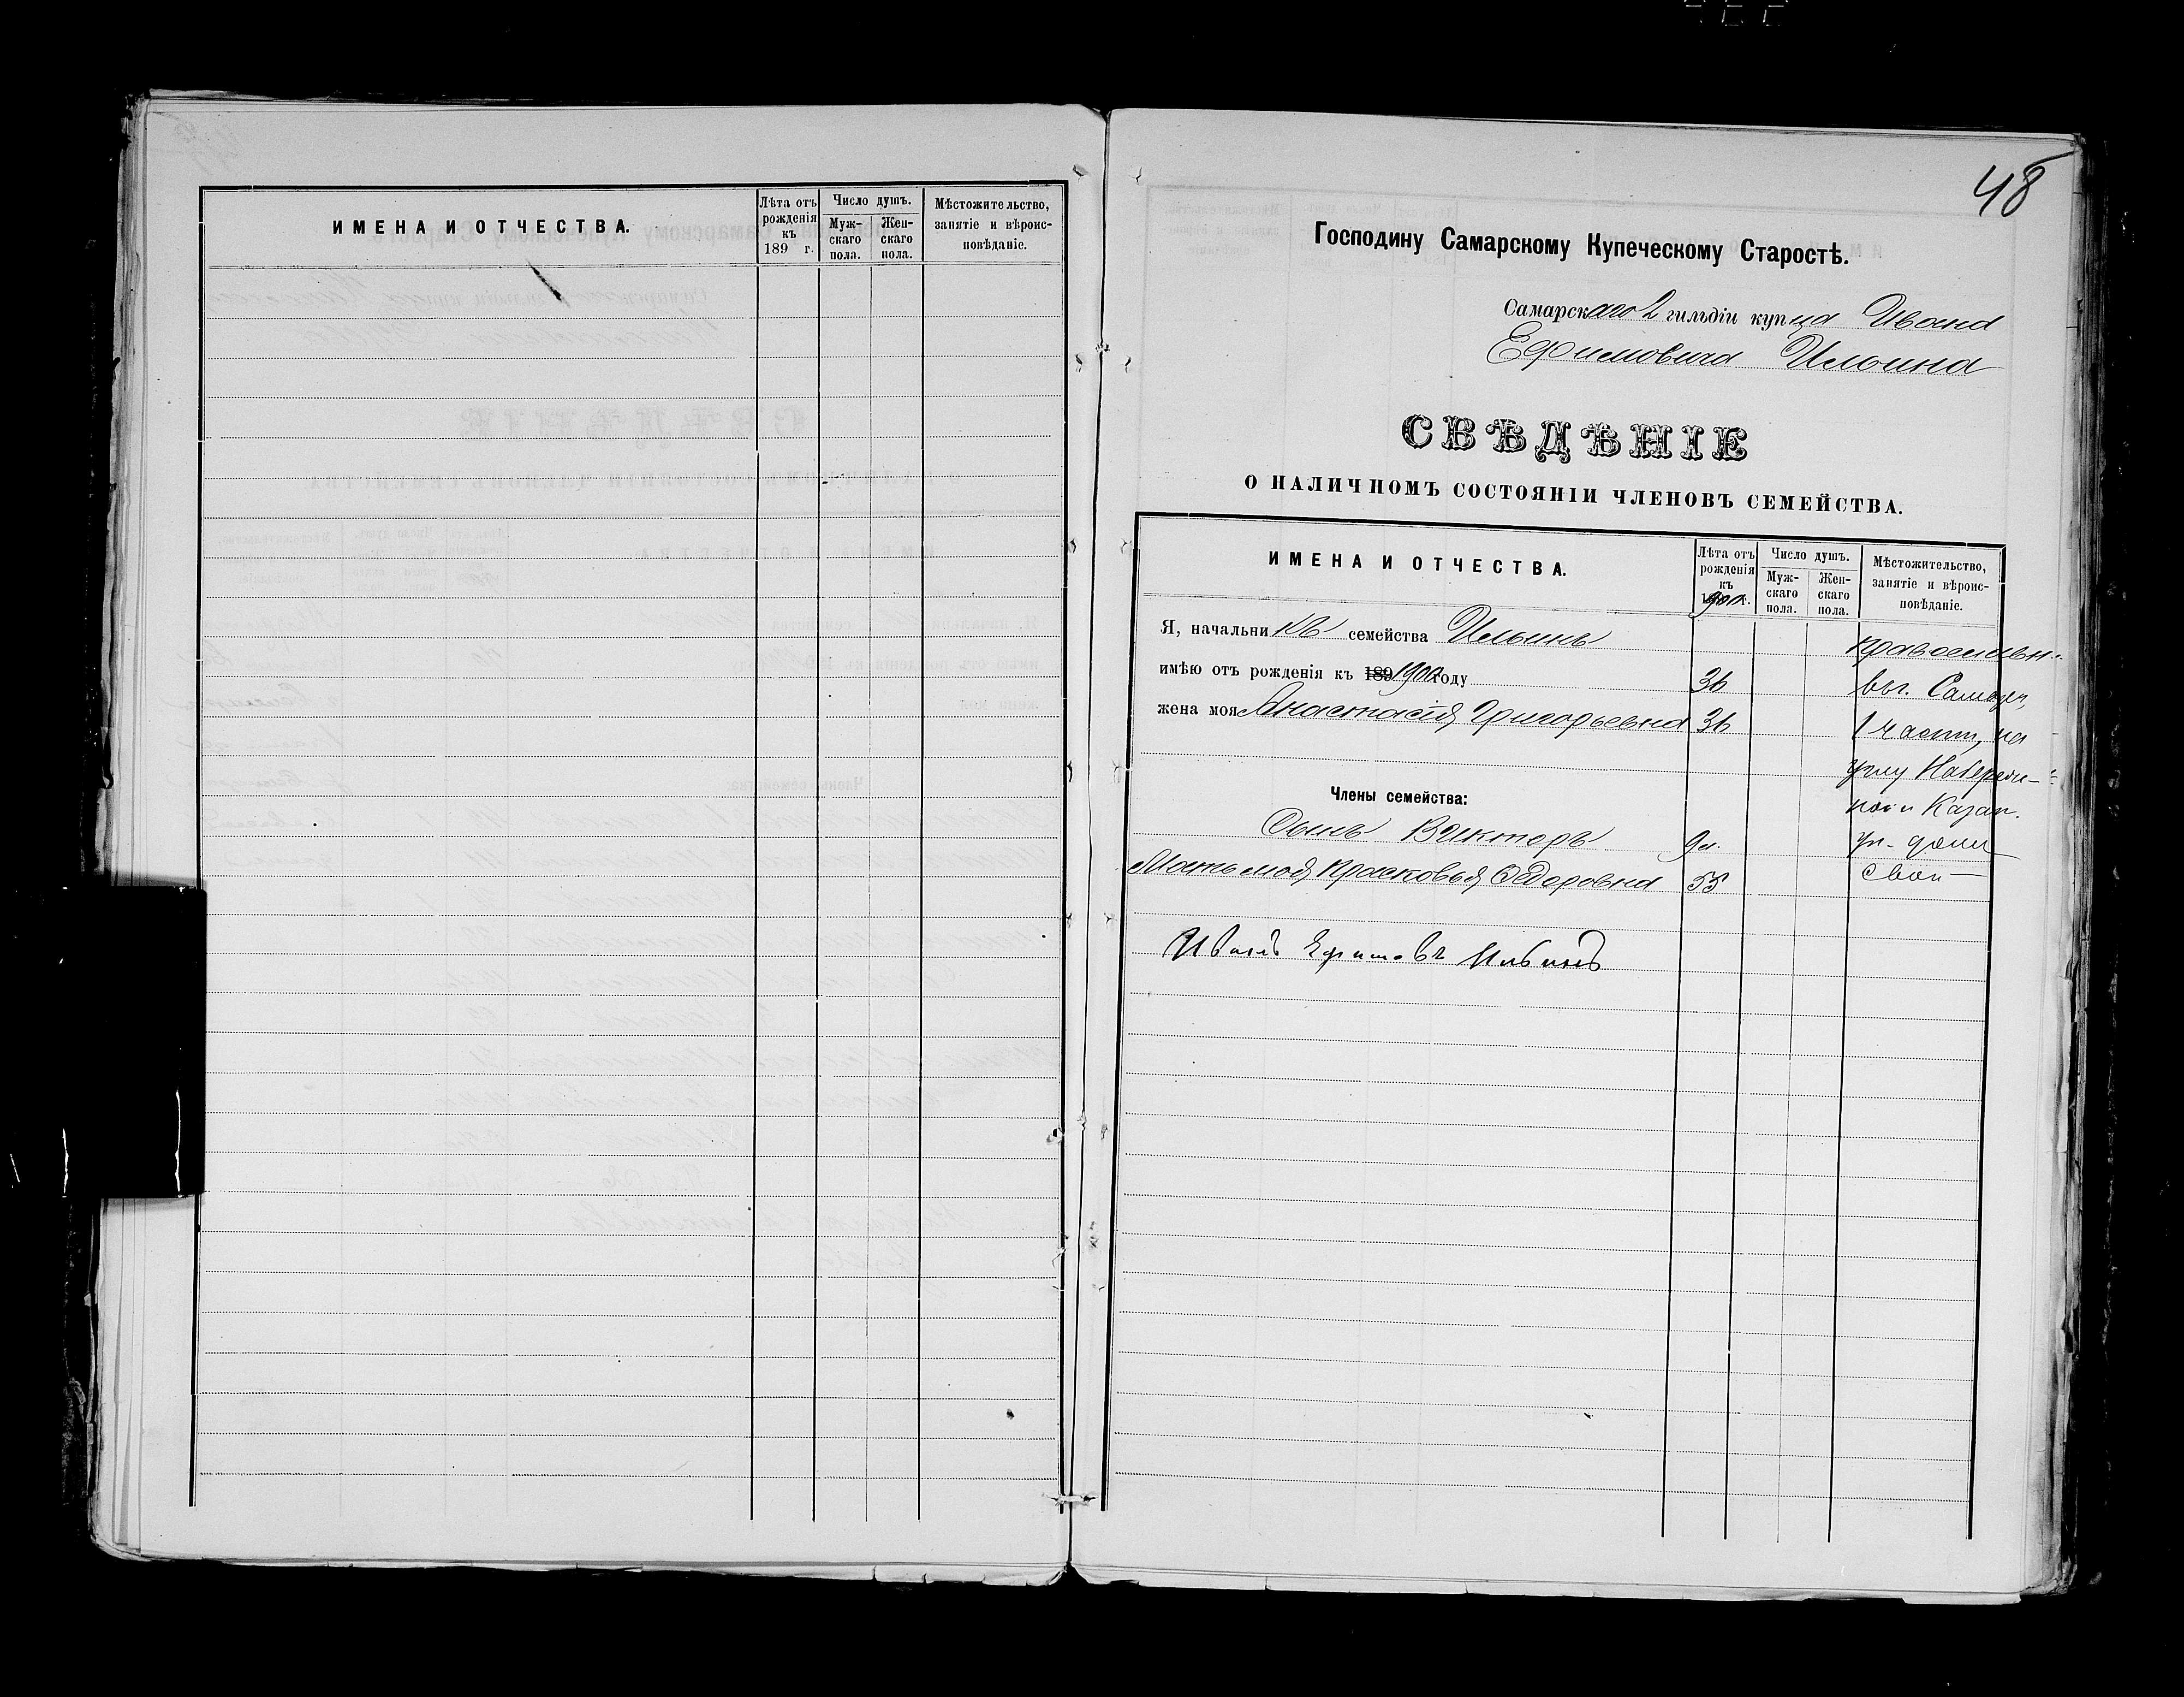 ИМЕНА И ОТЧЕСТВА.
Лѣта отъ рожденія къ 189 г.
Число душъ.
Мужскаго пола.
Женскаго пола.
Мѣстожительство, занятіе и вѣроисповѣданіе.
48
Господину Самарскому Купеческому Старостѣ.
Самарскаго 2 гильдіи купца Ивана
Ефимовича Ильина
СВѢДѢНІЕ
О НАЛИЧНОМЪ СОСТОЯНІИ ЧЛЕНОВЪ СЕМЕЙСТВА.
ИМЕНА И ОТЧЕСТВА.
Лѣта отъ
рожденія
къ
Число душъ.
Муж-
скаго
пола.
Жен-
скаго
пола.
Мѣстожительство,
занятіе и вѣроис-
повѣданіе.
Я, начальникъ семейства Ильинъ
имѣю отъ рожденія къ 189 1900 году 36
жена моя Анастасія Григорьевна 36
Члены семейства:
Сынъ Викторъ 9 л.
Мать моя Прасковья Ѳедоровна 55
Иванъ Ефимовъ Ильинъ
православн.
въ г. Самарѣ,
1 части, на
углу Набереж-
ной и Казан.
ул. домъ
свой